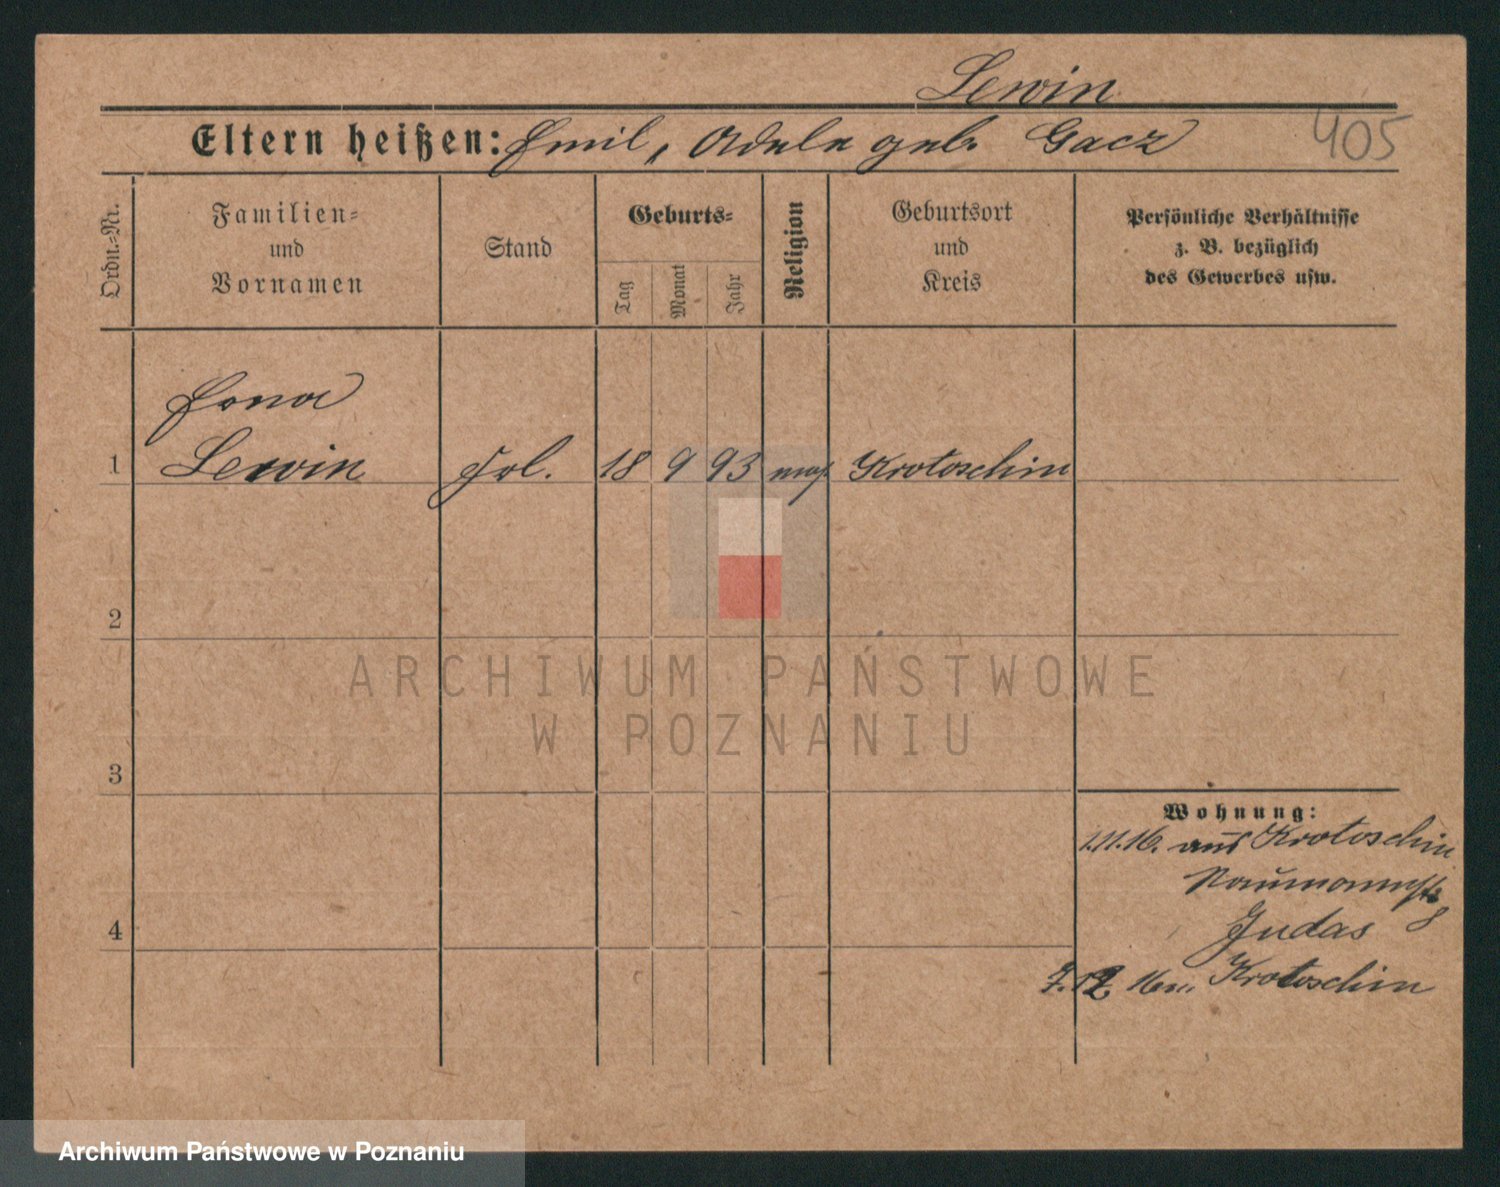 Lewin
Eltern heißen: Emil, Adele geb. Gacz
405
Ordn.-Nr.
Familien- und Vornamen
Stand
Geburts-
Tag
Monat
Jahr
Religion
Geburtsort und Kreis
Persönliche Verhältnisse
z. B. bezüglich
des Gewerbes usw.
Erna
1 Lewin Frl. 18 9 93 mos. Krotoschin
2
ARCHIWUM PAŃSTWOWE
W POZNANIU
3
Wohnung:
1.11.16. aus Krotoschin
Naumannstr
8
Judas
4
7.12 16 n. Krotoschin
Archiwum Państwowe w Poznaniu